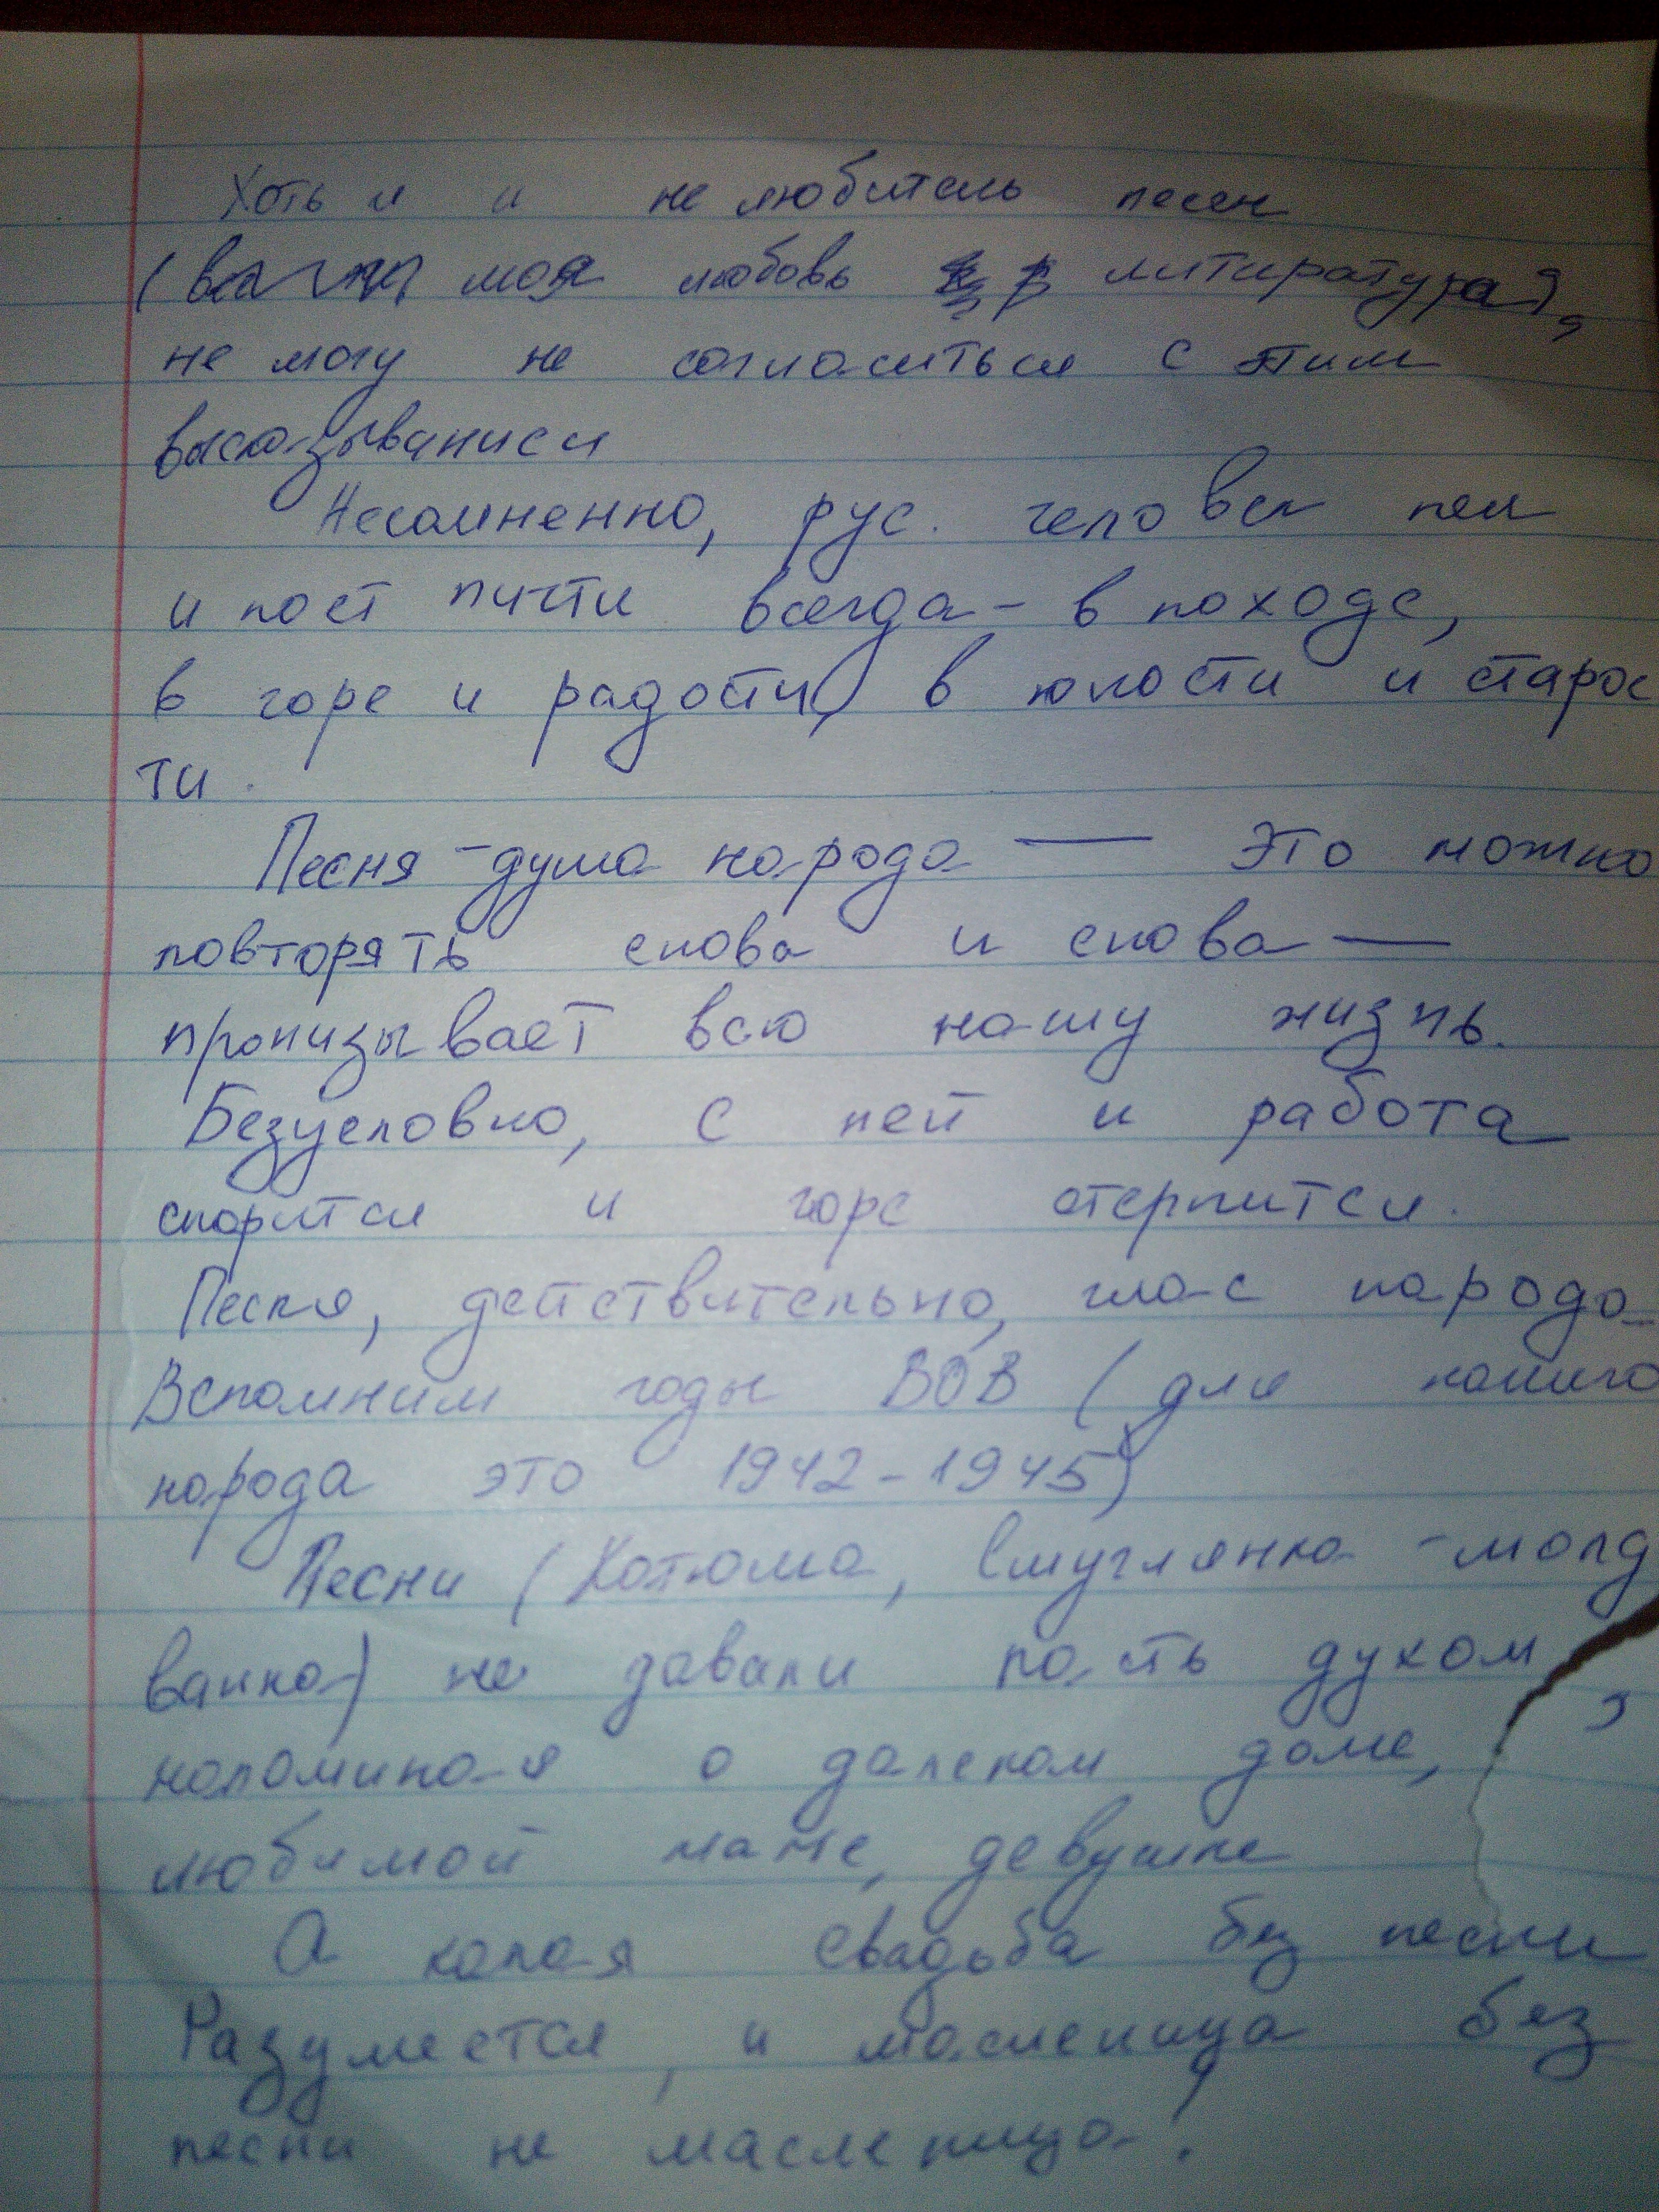 Хоть я и не любитель песен
( моя любовь литиратура),
не могу не согласиться с этим
высказыванием
Несомненно, рус. человек пел
и поет почти всегда - в походе,
в горе и радости, в юности и старос
ти.
Песня - душа народа — Это можно
повторять снова и снова —
пронизывает всю нашу жизнь.
Безусловно, с ней и работа
спорится и горе стерпится.
Песня, действительно, глас народа
Вспомним годы ВОВ (для нашего
народа это 1942-1945)
Песни (Катюша, Смуглянка - молд
ванка) не давали пасть духом,
напоминая о далеком доме,
любимой маме, девушке
А какая свадьба без песни
Разумеется, и масленица без
песни не масленица!